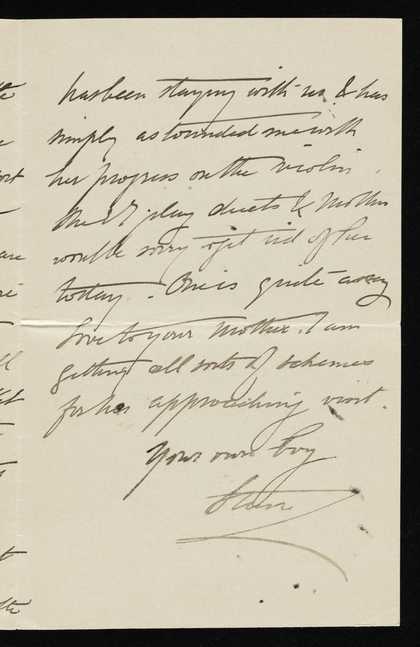 has been staying with us & has
simply astounded me with
her progress on the violin.
She & I play duets & Mother
would be sorry to get rid of her
today. One is quite
Love to your Mother. I am
getting all sorts of schemes
for her approaching visit.
Your own boy